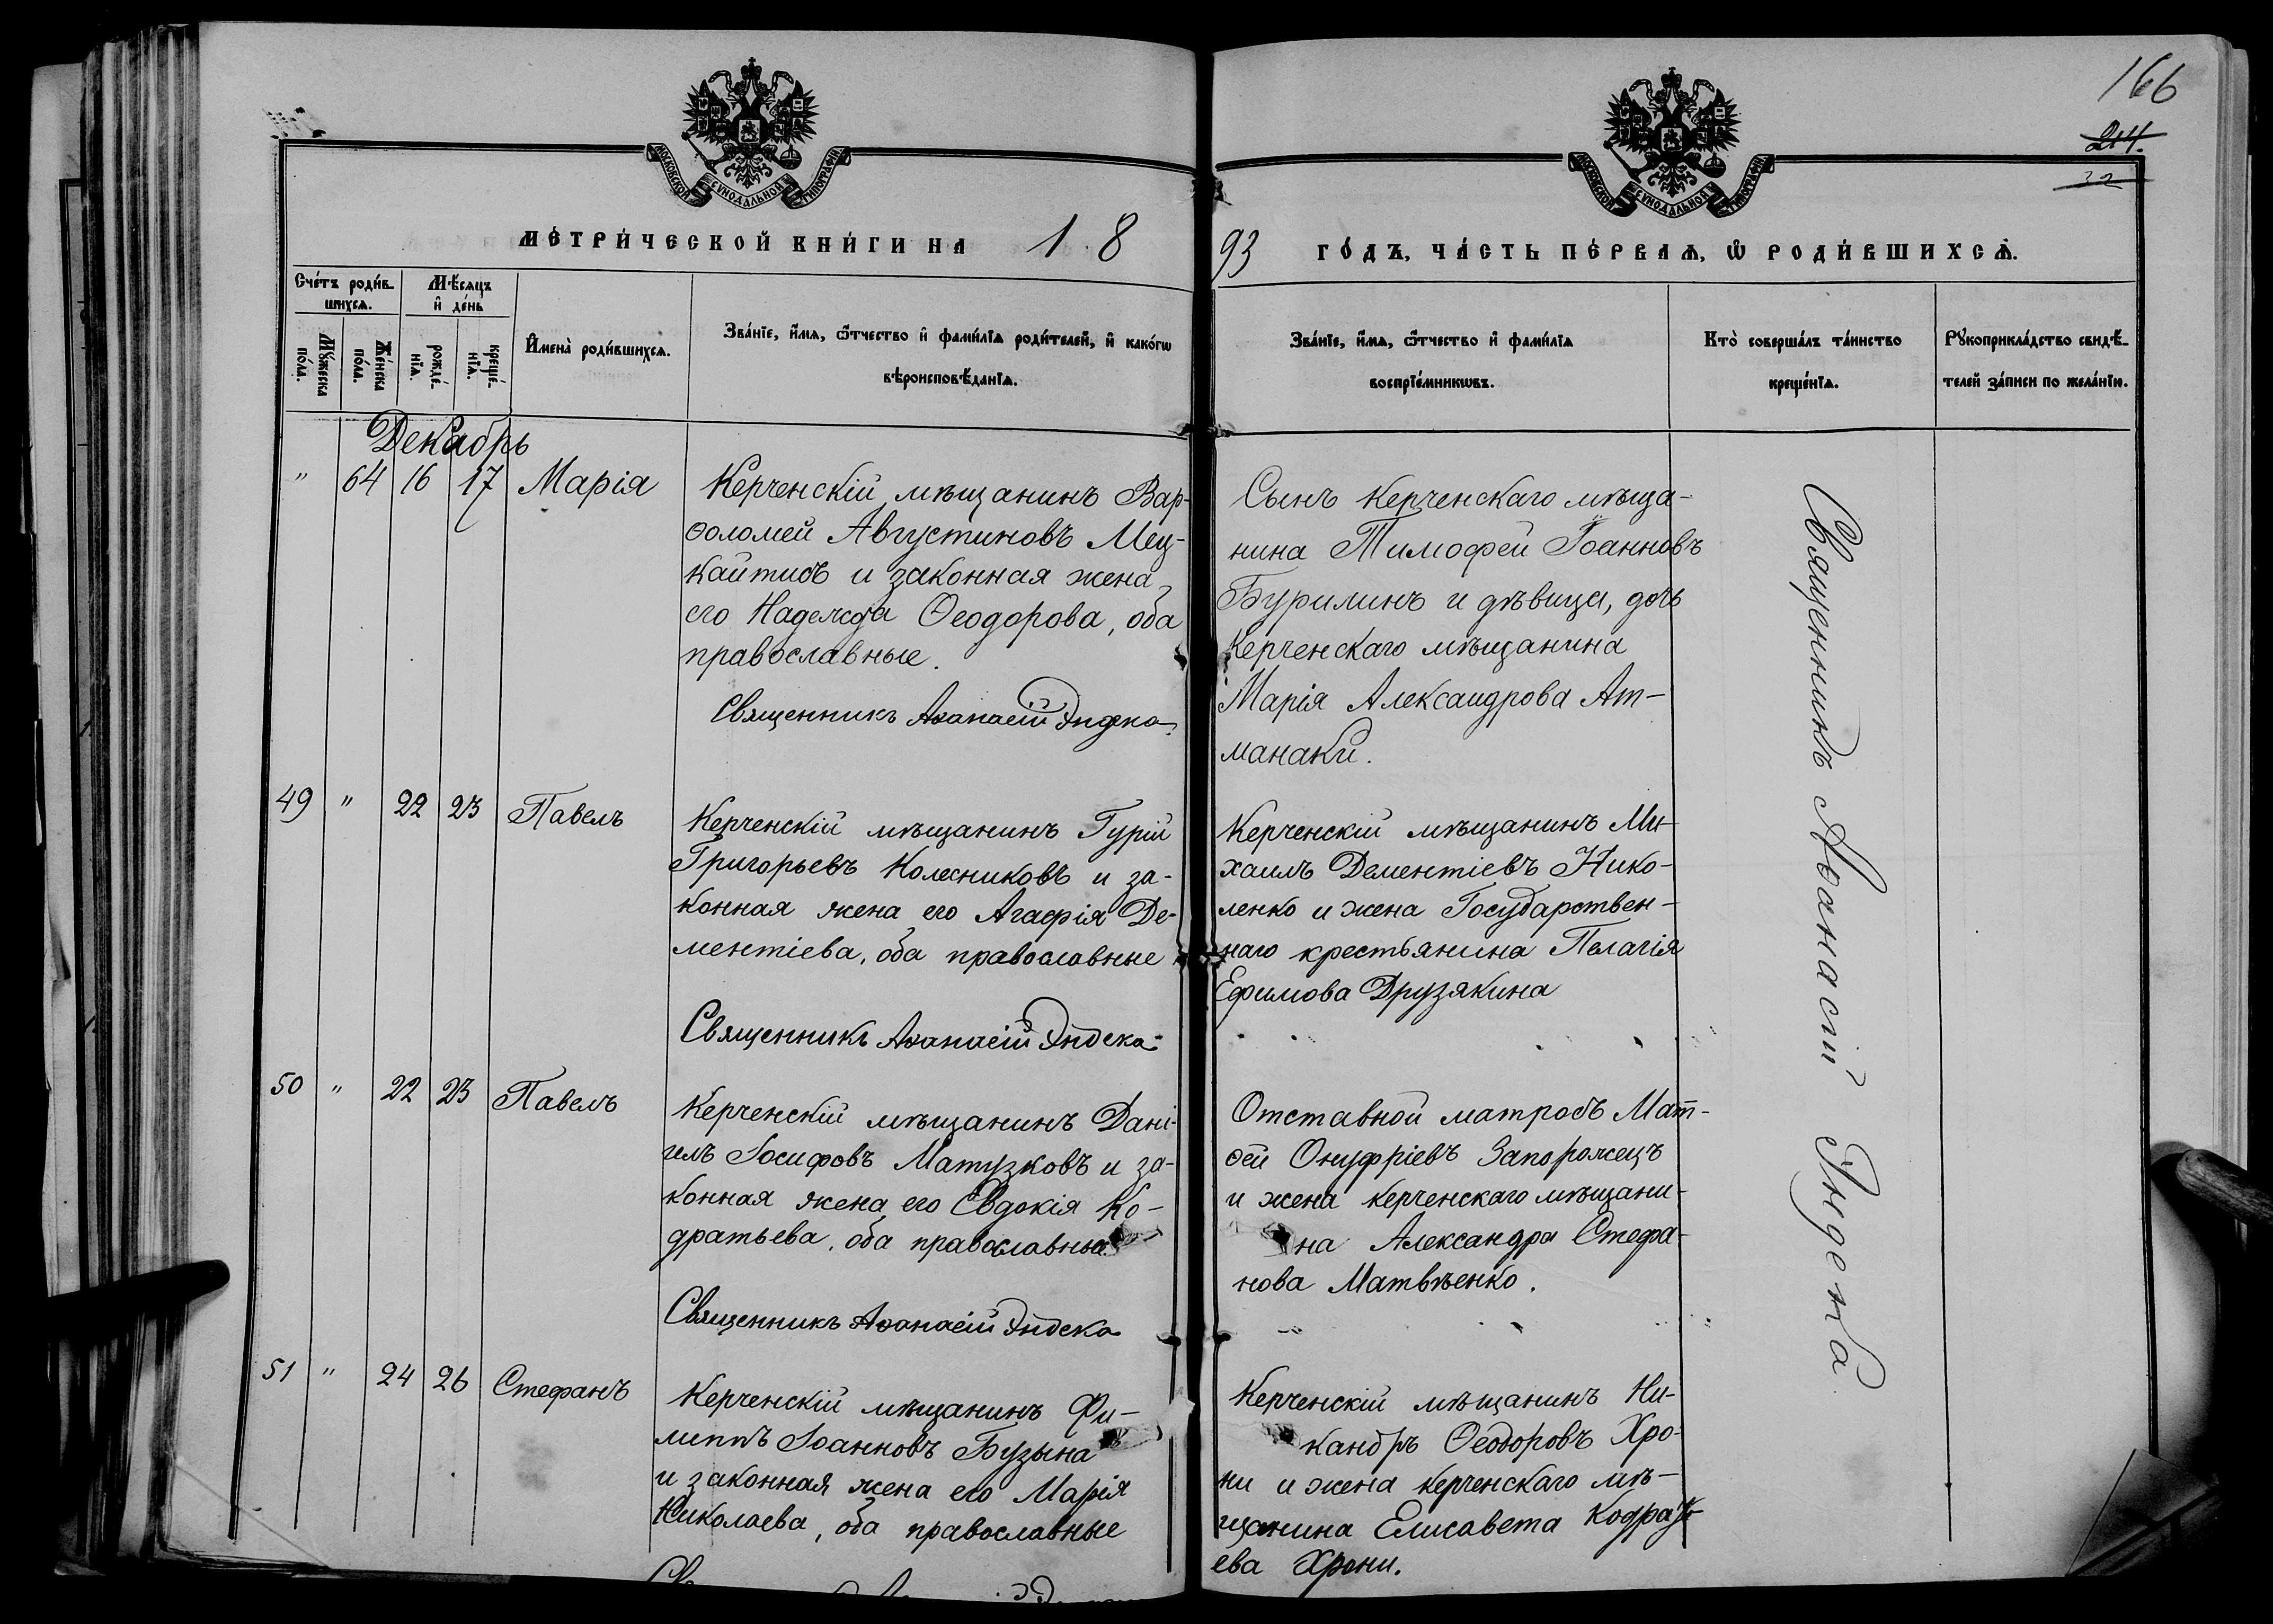 166
214.
32
МОСКОВСКОЙ СѴНОДАЛЬНОЙ ТИПОГРАФІИ
МОСКОВСКОЙ СѴНОДАЛЬНОЙ ТИПОГРАФІИ
МЕТРИ́ЧЕСКОЙ КНИ́ГИ НА 18
93 ГО́ДЪ, ЧА́СТЬ ПЕ́РВАѦ, Ѿ РОДИ́ВШИХСѦ.
Сче́тъ роди́в-
шихсѧ.
Мѣ́сѧцъ
и҆ де́нь
Мꙋ́жеска
по́ла.
Же́нска
по́ла.
рожде́-
нїѧ.
креще́-
нїѧ.
И҆мена̀ роди́вшихсѧ.
Зва́нїе, и҆́мѧ, ѻ҆́тчество и҆ фами́лїѧ роди́телей, и҆ како́гѡ
вѣроисповѣ́данїѧ.
Зва́нїе, и҆́мѧ, ѻ҆́тчество и҆ фами́лїѧ
воспрїе́мникѡвъ.
Кто̀ соверша́лъ та́инство
креще́нїѧ.
Рꙋкоприкла́дство свидѣ́-
телей за́писи по жела́нїю.
Декабрь
" 64 16 17 Марія
Керченскій мѣщанинъ Вар-
ѳоломей Августиновъ Мец-
кайтисъ и законная жена
его Надежда Ѳеодорова, оба
православные.
Священникъ Аѳанасій Индека
Сынъ Керченскаго мѣща-
нина Тимофей Іоанновъ
Бурилинъ и дѣвица, дочь
Керченскаго мѣщанина
Марія Александрова Ат-
манаки.
49 " 22 23 Павелъ
Керченскій мѣщанинъ Гурій
Григорьевъ Колесниковъ и за-
конная жена его Агафія Де-
ментіева, оба православные
Священникъ Аѳанасій Индека
Керченскій мѣщанинъ Ми-
хаилъ Дементіевъ Нико-
ленко и жена Государствен-
наго крестьянина Пелагія
Ефимова Друзякина
50 " 22 23 Павелъ
Керченскій мѣщанинъ Дані-
илъ Іосифовъ Матузковъ и за-
конная жена его Евдокія Ко-
дратьева, оба православные
Священникъ Аѳанасій Индека
Отставной матросъ Мат-
ѳей Онуфріевъ Запорожецъ
и жена керченскаго мѣщани-
на Александра Стефа-
нова Матвѣенко.
51 " 24 26 Стефанъ
Керченскій мѣщанинъ Фи-
липпъ Іоанновъ Бузына
и законная жена его Марія
Николаева, оба православные
Керченскій мѣщанинъ Ни-
кандръ Ѳеодоровъ Хро-
ни и жена керченскаго мѣ-
щанина Елисавета Кодрать-
ева Хрони.
Священникъ Аѳанасій Индека